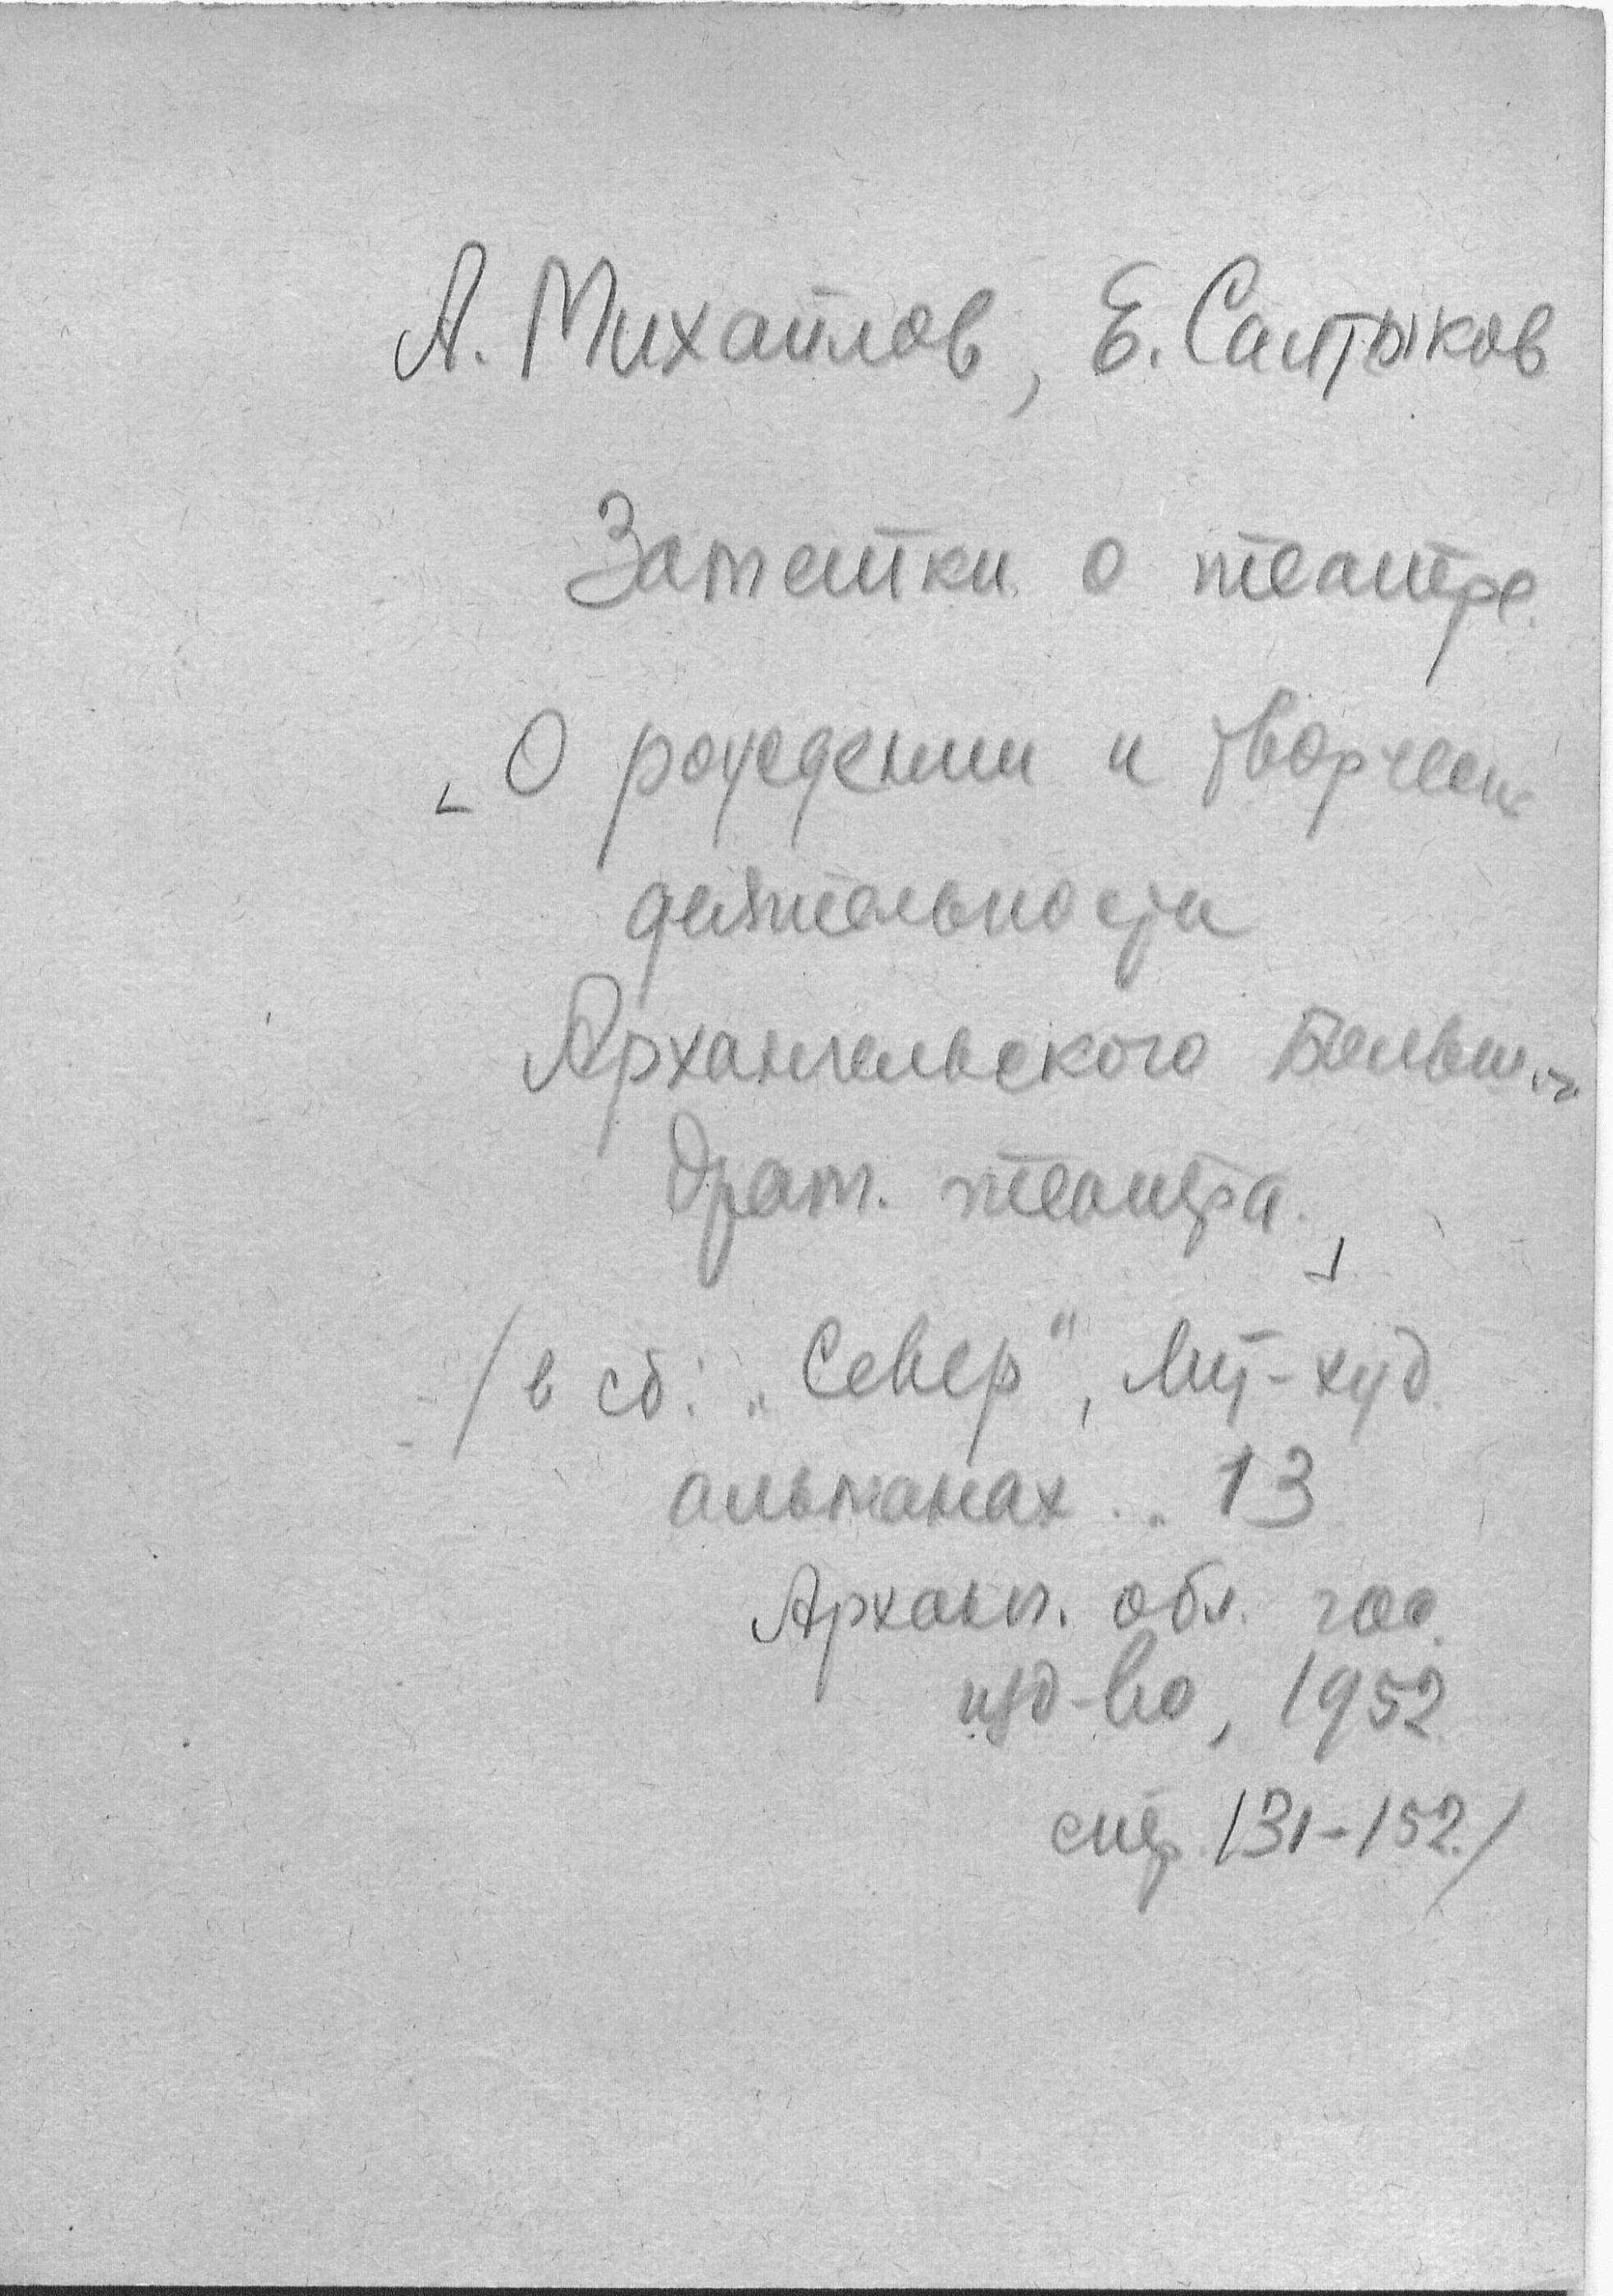 А. Михайлов, Е. Салтыков
Заметки о театре.
[О рождении и творческ.
деятельности
Архангельского Больш.
драм. театра.]
/в сб: „Север", Лит-худ.
альманах .. 13
Арханг. обл. гос.
изд-во, 1952
стр. 131-152./